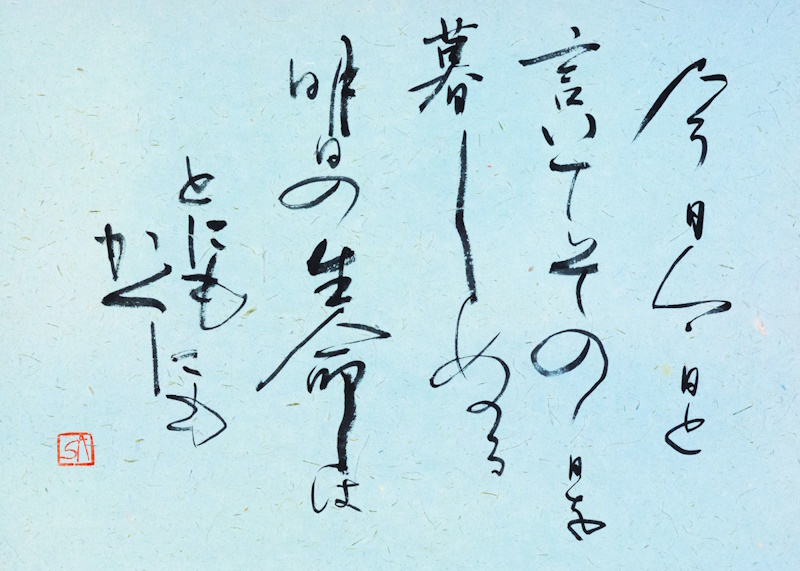 今日今日と
言いてその日を
暮しぬる
明日の生命は
とにも
かくにも
SA